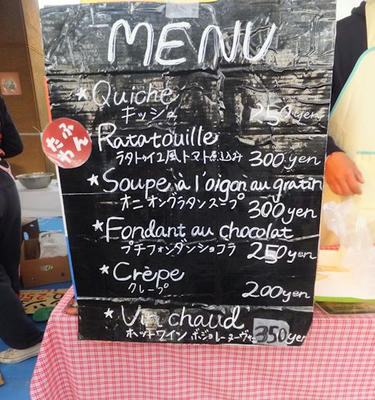 MENU
★Quiche 250yen
キッシュ
たふ
わん
Ratatouille
ラタトゥイユ風トマト煮込み 300yen
★Soupe à l'oigon au gratin
オニオングラタンスープ 300yen
★Fondant au chocolat
プチフォンダンショコラ 250yen
★Crêpe
クレープ 200yen
★Vin chaud
ホットワイン ボジョレーヌーヴォー 350yen